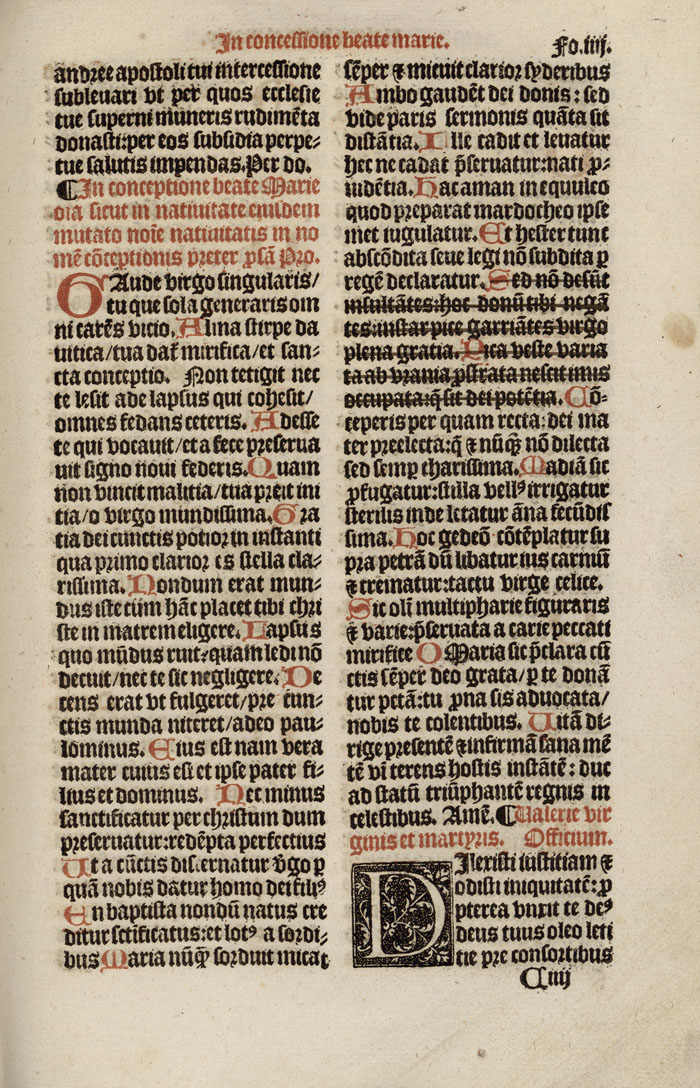 In concessione beate marie.
Fo.iiij.
andree apostoli tui intercessione
sublevari vt per quos ecclesie
tue superni muneris rudimēta
donasti:per eos subsidia perpe-
tue salutis impendas.Per do.
¶In conceptione beate Marie
oīa sicut in nativitate eiusdem
mutato noīe nativitatis in no
mē cōceptionis preter ꝓsā Pro.
GAude virgo singularis/
tu que sola generaris om
ni carēs vicio. Alma stirpe da
uitica/tua daƭ mirifica/et san-
cta conceptio. Non tetigit nec
te lesit ade lapsus qui cohesit/
omnes fedans ceteris. Adesse
te qui vocauit/et a fece preserua
uit signo noui federis.Quam
non vincit malitia/tua preit ini
tia/o virgo mundissima.Gra
tia dei cunctis potior in instanti
qua primo clarior es stella cla-
rissima.Nondum erat mun-
dus iste cum hāc placet tibi chri
ste in matrem eligere.Lapsus
quo mūdus ruit:quam ledi nō
decuit/nec te sic negligere.De
cens erat vt fulgeret/pre cun-
ctis munda niteret/adeo pau-
lominus. Eius est nam vera
mater cuius est et ipse pater fi-
lius et dominus. Nec minus
sanctificatur per christum dum
preseruatur:redēpta perfectius
Ut a cūctis discernatur vgo ꝑ
quā nobis datur homo dei filiꝰ
En baptista nondū natus cre
ditur sctīficatus:et lotꝰ a sordi-
bus Maria nūꝙ̄ sorduit micat
sēper ⁊ micuit clarior syderibus
Ambo gaudēt dei donis: sed
vide paris sermonis quāta sit
distātia.Ille cadit et levatur
hec ne cadat p̄servatur:nati ꝓ-
uidētia.Hac aman in equuleo
quod preparat mardocheo ipse
met iugulatur.Et hester tunc
abscōdita seue legi nō subdita ꝑ
regē declaratur.Sed nō desūt
insultātes:hoc donū tibi negā
tes:instar pice garriātes virgo
plena gratia.Pica veste varia
ta ab vrania ꝓstrata nescit imis
occupata:ꝗ̄ sit dei potētia.Cō-
ceperis per quam recta:dei ma
ter preelecta:ꝗ̄ ⁊ nūꝙ̄ nō dilecta
sed semꝑ charissima.Madiā sic
ꝓfugatur:stilla vellꝰ irrigatur
sterilis inde letatur āna fecūdis
sima.Hoc gedeō cōtēplatur su
pra petrā dū libatur ius carniū
⁊ crematur:tactu virge celice.
Sic olī multipharie figuraris
⁊ varie:p̄seruata a carie peccati
mirifice O Maria sic p̄clara cū
ctis sēper deo grata/ꝑ te donā
tur pctā:tu ꝓna sis aduocata/
nobis te colentibus. Uitā di-
rige presentē ⁊ infirmā sana mē
tē vī terens hostis instātē: duc
ad statū triūphantē regnis in
celestibus. Amē.¶Ualerie vir
ginis et martyris. Officium.
DIlexisti iustitiam ⁊
odisti iniquitatē:ꝓ
pterea vnxit te deꝰ
deus tuus oleo leti
tie pre consortibus
C iiij